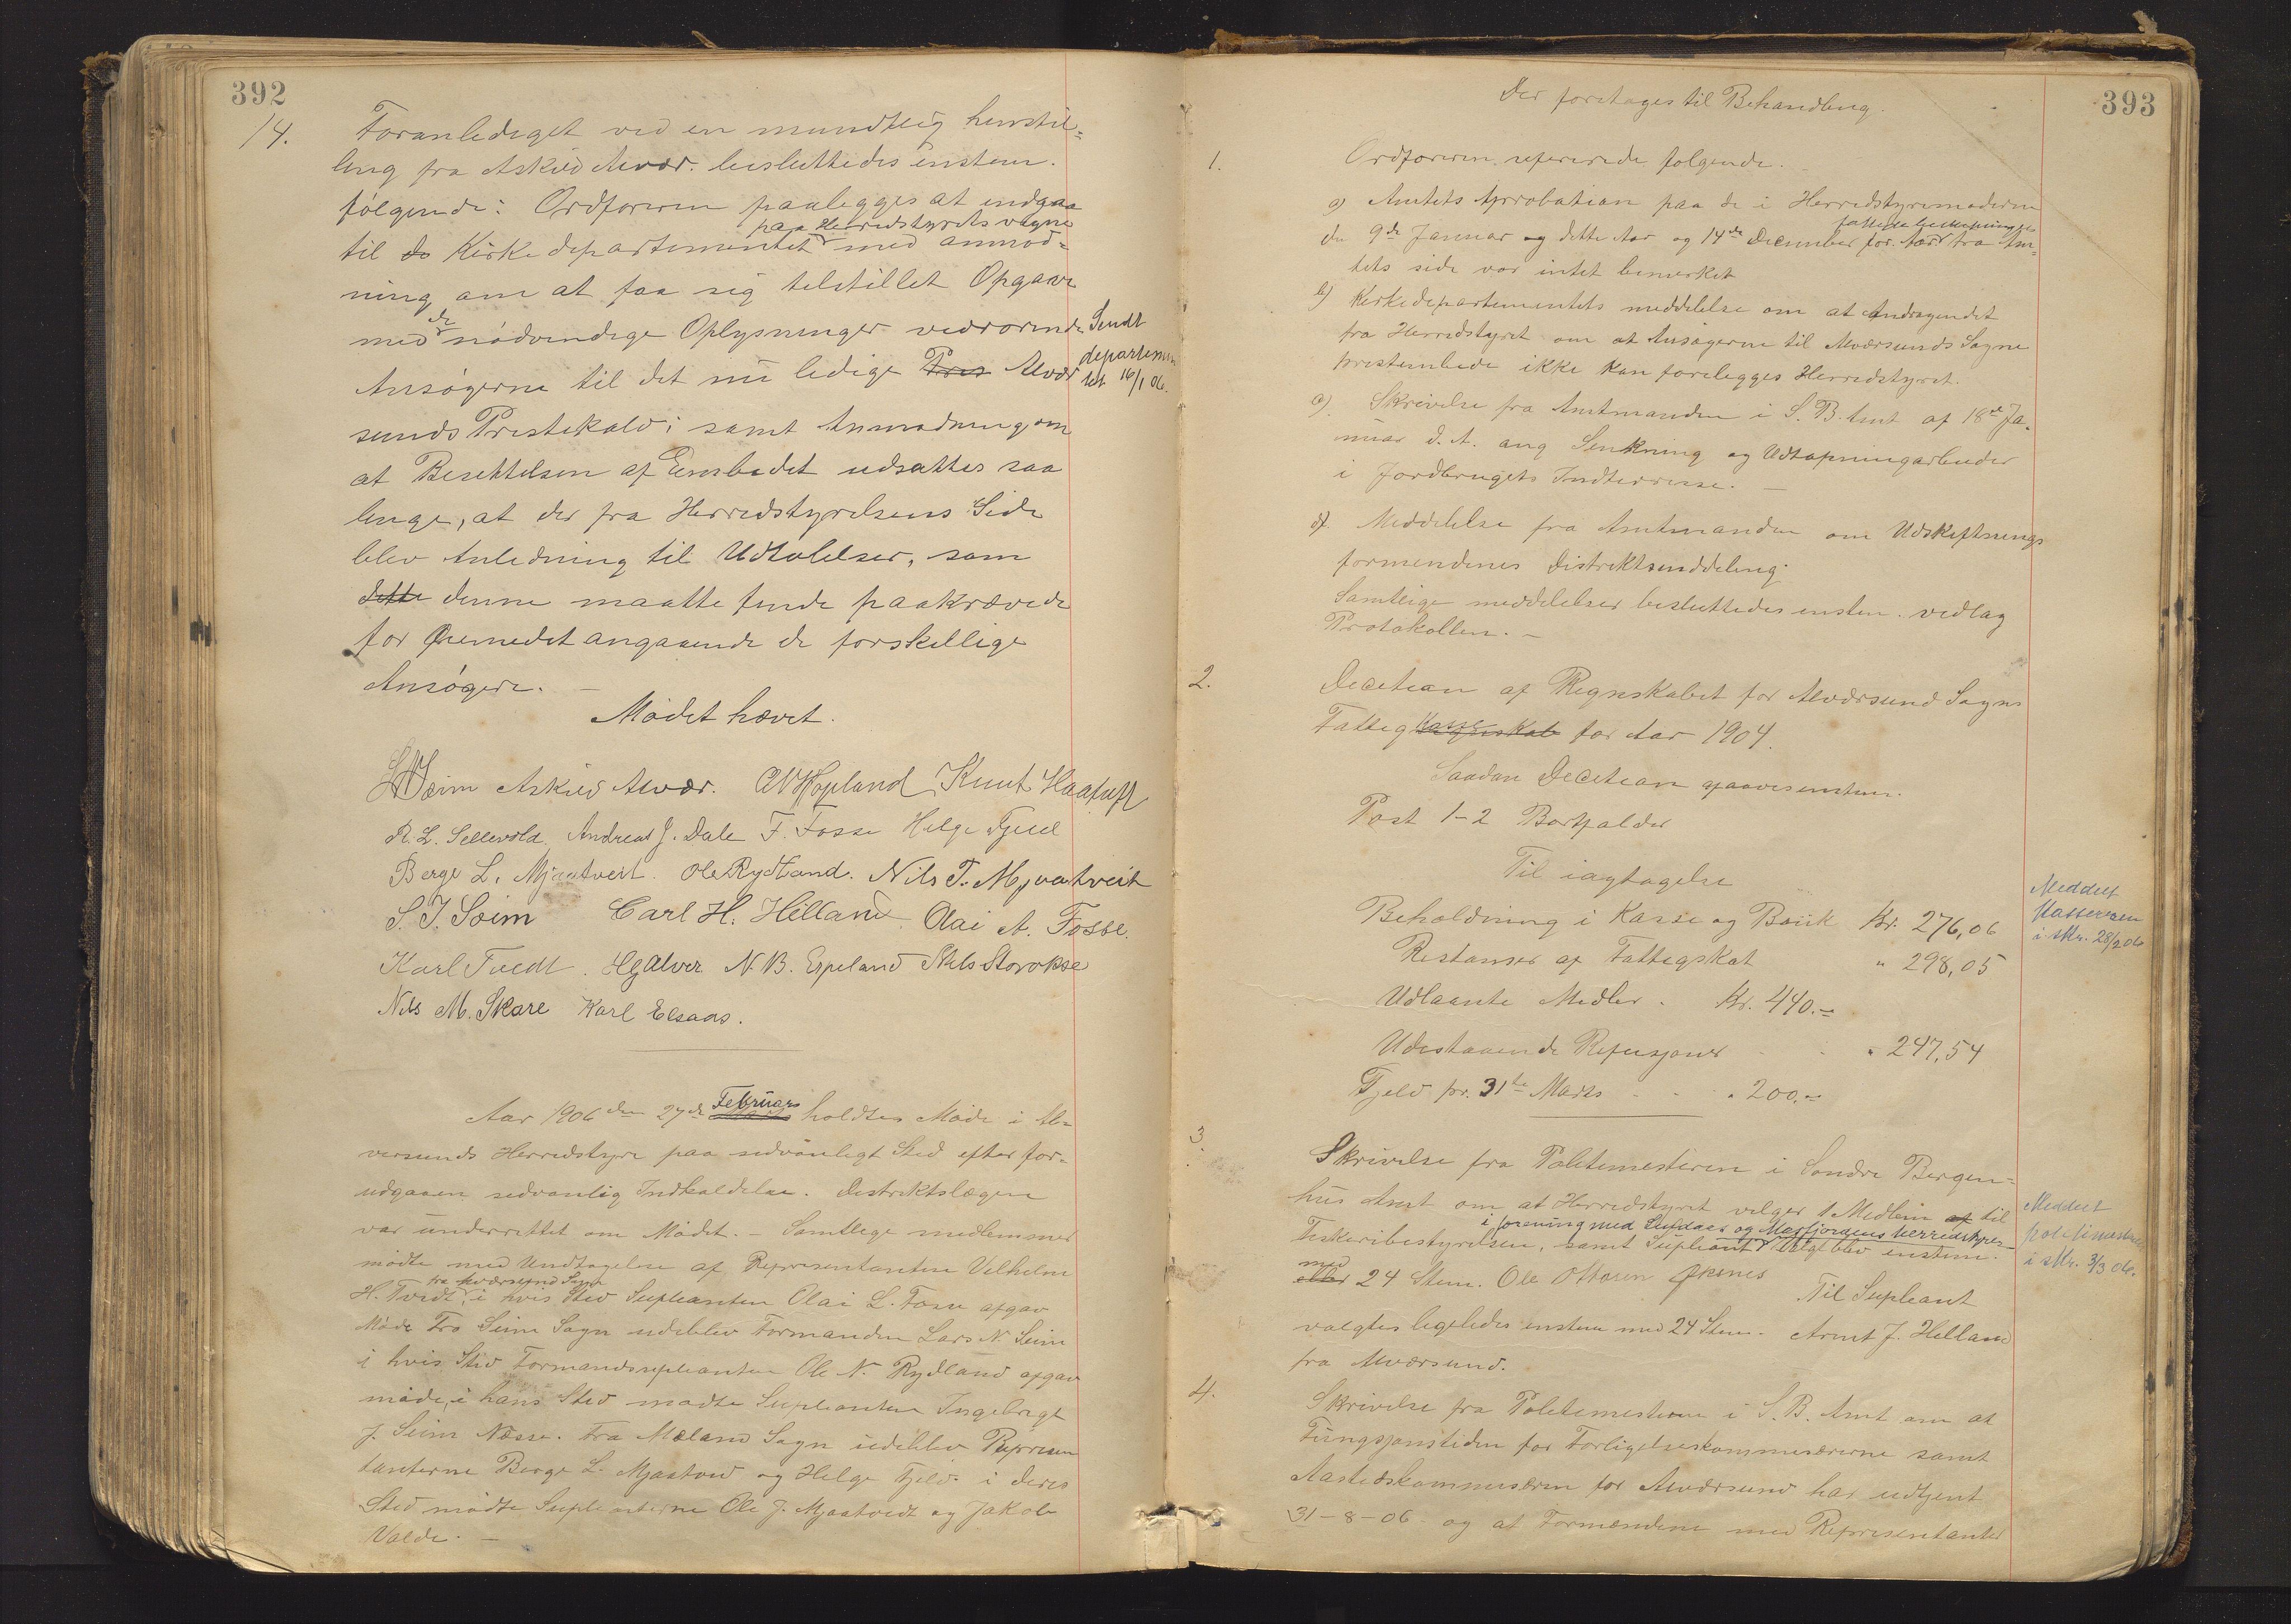 392
14. Foranlediget ved en mundtlig henstil=
ling fra Askild Alvær. besluttedes enstem.
følgende: Ordføreren paalegges at indgaa
paa Herredstyrets vegne
til do Kirkedepartementet med anmod=
ning om at faa sig tilstillet Opgave
de
med nødvendige Oplysninger vedrørende
Ansøgerne til det nu ledige Pres Alvær
sunds Prestekald; samt Anmodning om
at Besettelsen af Embedet udsattes saa
lenge, at der fra Herredstyrelsens Side
blev Anledning til Udtalelser, som
dette denne maatte finde paakrævede
for Øiemedet angaaende de forskellige
Ansøgere. —
Sendt
departemen
tet 16/1 06.
Mødet hævet.
Askild Alvær. Knut Haatuft
R. L. Sellevold. Andreas J. Dale F. Fosse Helge Fjeld
Berge L. Mjaatveit. Ole Rydland. Nils T. Mjaatveit
S. J. Soim Carl H. Helland Olai A. Fosse.
Karl Tvedt. HJ Alver. N. B. Espeland Nils Storokse
Nils M. Skare Karl Elsaas.
Februar
Aar 1906 den 27de holdtes Møde i Al=
versunds Herredstyre paa sedvanligt Sted efter for=
udgaaen sedvanlig Indkaldelse. Distriktslægen
var underrettet om Mødet. — Samtlege medlemmer
mødte med Undtagelse af Representanten Vilhelm
fra Alværsund Sogn
H. Tvedt, i hvis Sted Supleanten Olai L. Fosse afgav
Møde Fra Seim Sogn udeblev Formanden Lars N. Seim
i hvis Sted Formandssupleanten Ole N. Rydland afgav
møde, i hans Sted mødte Supleanten Ingebrigt
J. Seim Næsse. Fra Mæland Sogn udeblev Represen
tanterne Berge L. Mjaatved og Helge Fjeld i deres
Sted mødte Supleanterne Ole J. Mjaatvedt og Jakob
Valde. —
393
Der foretages til Behandling.
1. Ordføreren refererede følgende.
a) Amtets Aprobation paa de i Herredstyremøderne
fattede beslutninger
de 9de Januar og dette Aar og 14de December for. Aar fra Am=
tets side var intet bemerket
b) Kirkedepartementets meddelelse om at Andragendet
fra Herredstyret om at Ansøgerne til Alværsunds Sogne
presteembede ikke kan forelegges Herredstyret.
c). Skrivelse fra Amtmanden i S. B. Amt af 18de Ja.
nuar d. A. ang Senkning og Udtapningarbeider
i Jordbrugets Indteresse. —
d). Meddelelse fra Amtmanden om Udskiftnings
formendenes Distriktsinddeling.
Samtlige meddelelser besluttedes enstem. vedlag
Protokollen. —
2. Decition af Regnskabet for Alværsund Sogns
Kasse
Fattigregnskab for Aar 1904.
Saadan Decition afgaves enstem.
Post 1-2 Bortfalder
Til iagtagelse
Beholdning i Kasse og Bank Kr. 276,06
Restanser af Fattigskat " 298,05
Udlaante Midler. Kr. 440.–
Udestaaende Refusjoner " 247,54
Gjeld pr. 31te Marts " 200.–
Meddelt
Kassereren
i skr. 28/2 06
3. Skrivelse fra Politimesteren i Søndre Bergen=
hus Amt om at Herredstyret velger 1 Medlem af til
i forening med Lindaas og Masfjordens herredstyrer
Fiskeribestyrelsen, samt Supleant Valgt blev enstem.
med
eller 24 Stem. Ole Ottesen Øksnes Til Supleant
valgtes ligeledes enstem med 24 Stem. Arnt J. Helland
fra Alværsund.
Meddelt
politimesteren
i skr. 3/3 06.
4. Skrivelse fra Politimesteren i S. B. Amt om at
Fungsjonstiden for Forligelseskommisærerne samt
Aastedskommisæren for Alværsund har udtjent
31-8-06 og at Formændene med Representanter